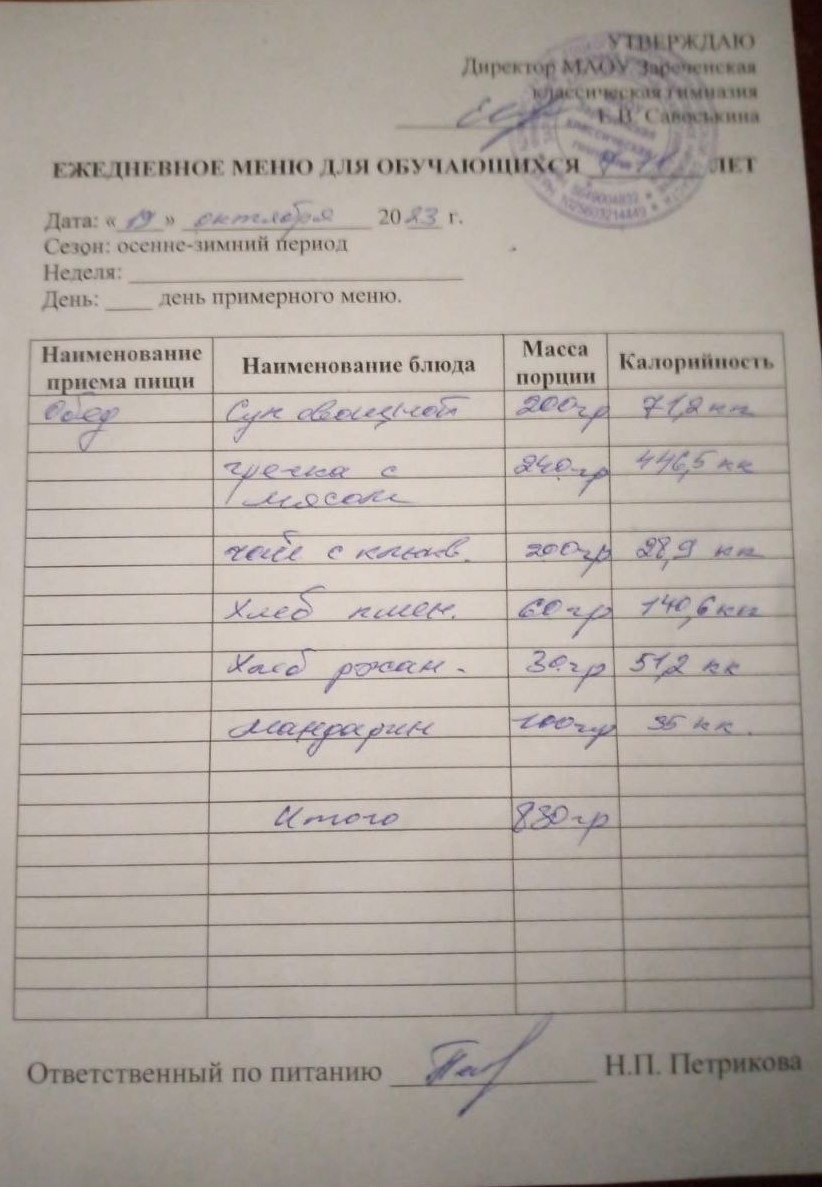 УТВЕРЖДАЮ
Директор МАОУ Зареченская
классическая гимназия
Е.В. Савоськина
ЕЖЕДНЕВНОЕ МЕНЮ ДЛЯ ОБУЧАЮЩИХСЯ ЛЕТ
Дата: «19» октября 2023 г.
Сезон: осенне-зимний период
Неделя:
День: ____ день примерного меню.
Наименование приема пищи Наименование блюда Масса порции Калорийность
Обед Суп овощной 200гр 71,2 кк
гречка с 240гр 446,5 кк
мясом
чай с клюкв. 200гр 28,9 кк
Хлеб пшен. 60гр 140,6кк
Хлеб ржан- 30гр 51,2 кк
мандарин 100гр кк.
Итого 830гр
Ответственный по питанию Н.П. Петрикова